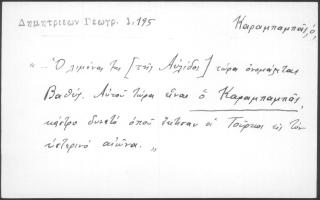 Δημητριεων Γεωγρ. 1,195
Καραμπαμπᾶς, ὁ,
"... Ὁ λιμένας της [τῆς Αὐλίδος] τώρα ὀνομάζεται
Βαθύς. Αὐτοῦ τώρα εἶναι ὁ Καραμπαμπᾶς,
κάστρο δυνατό ὁποῦ ἔκτισαν οἱ Τοῦρκοι εἰς τόν
ὑστερινό αἰῶνα. „